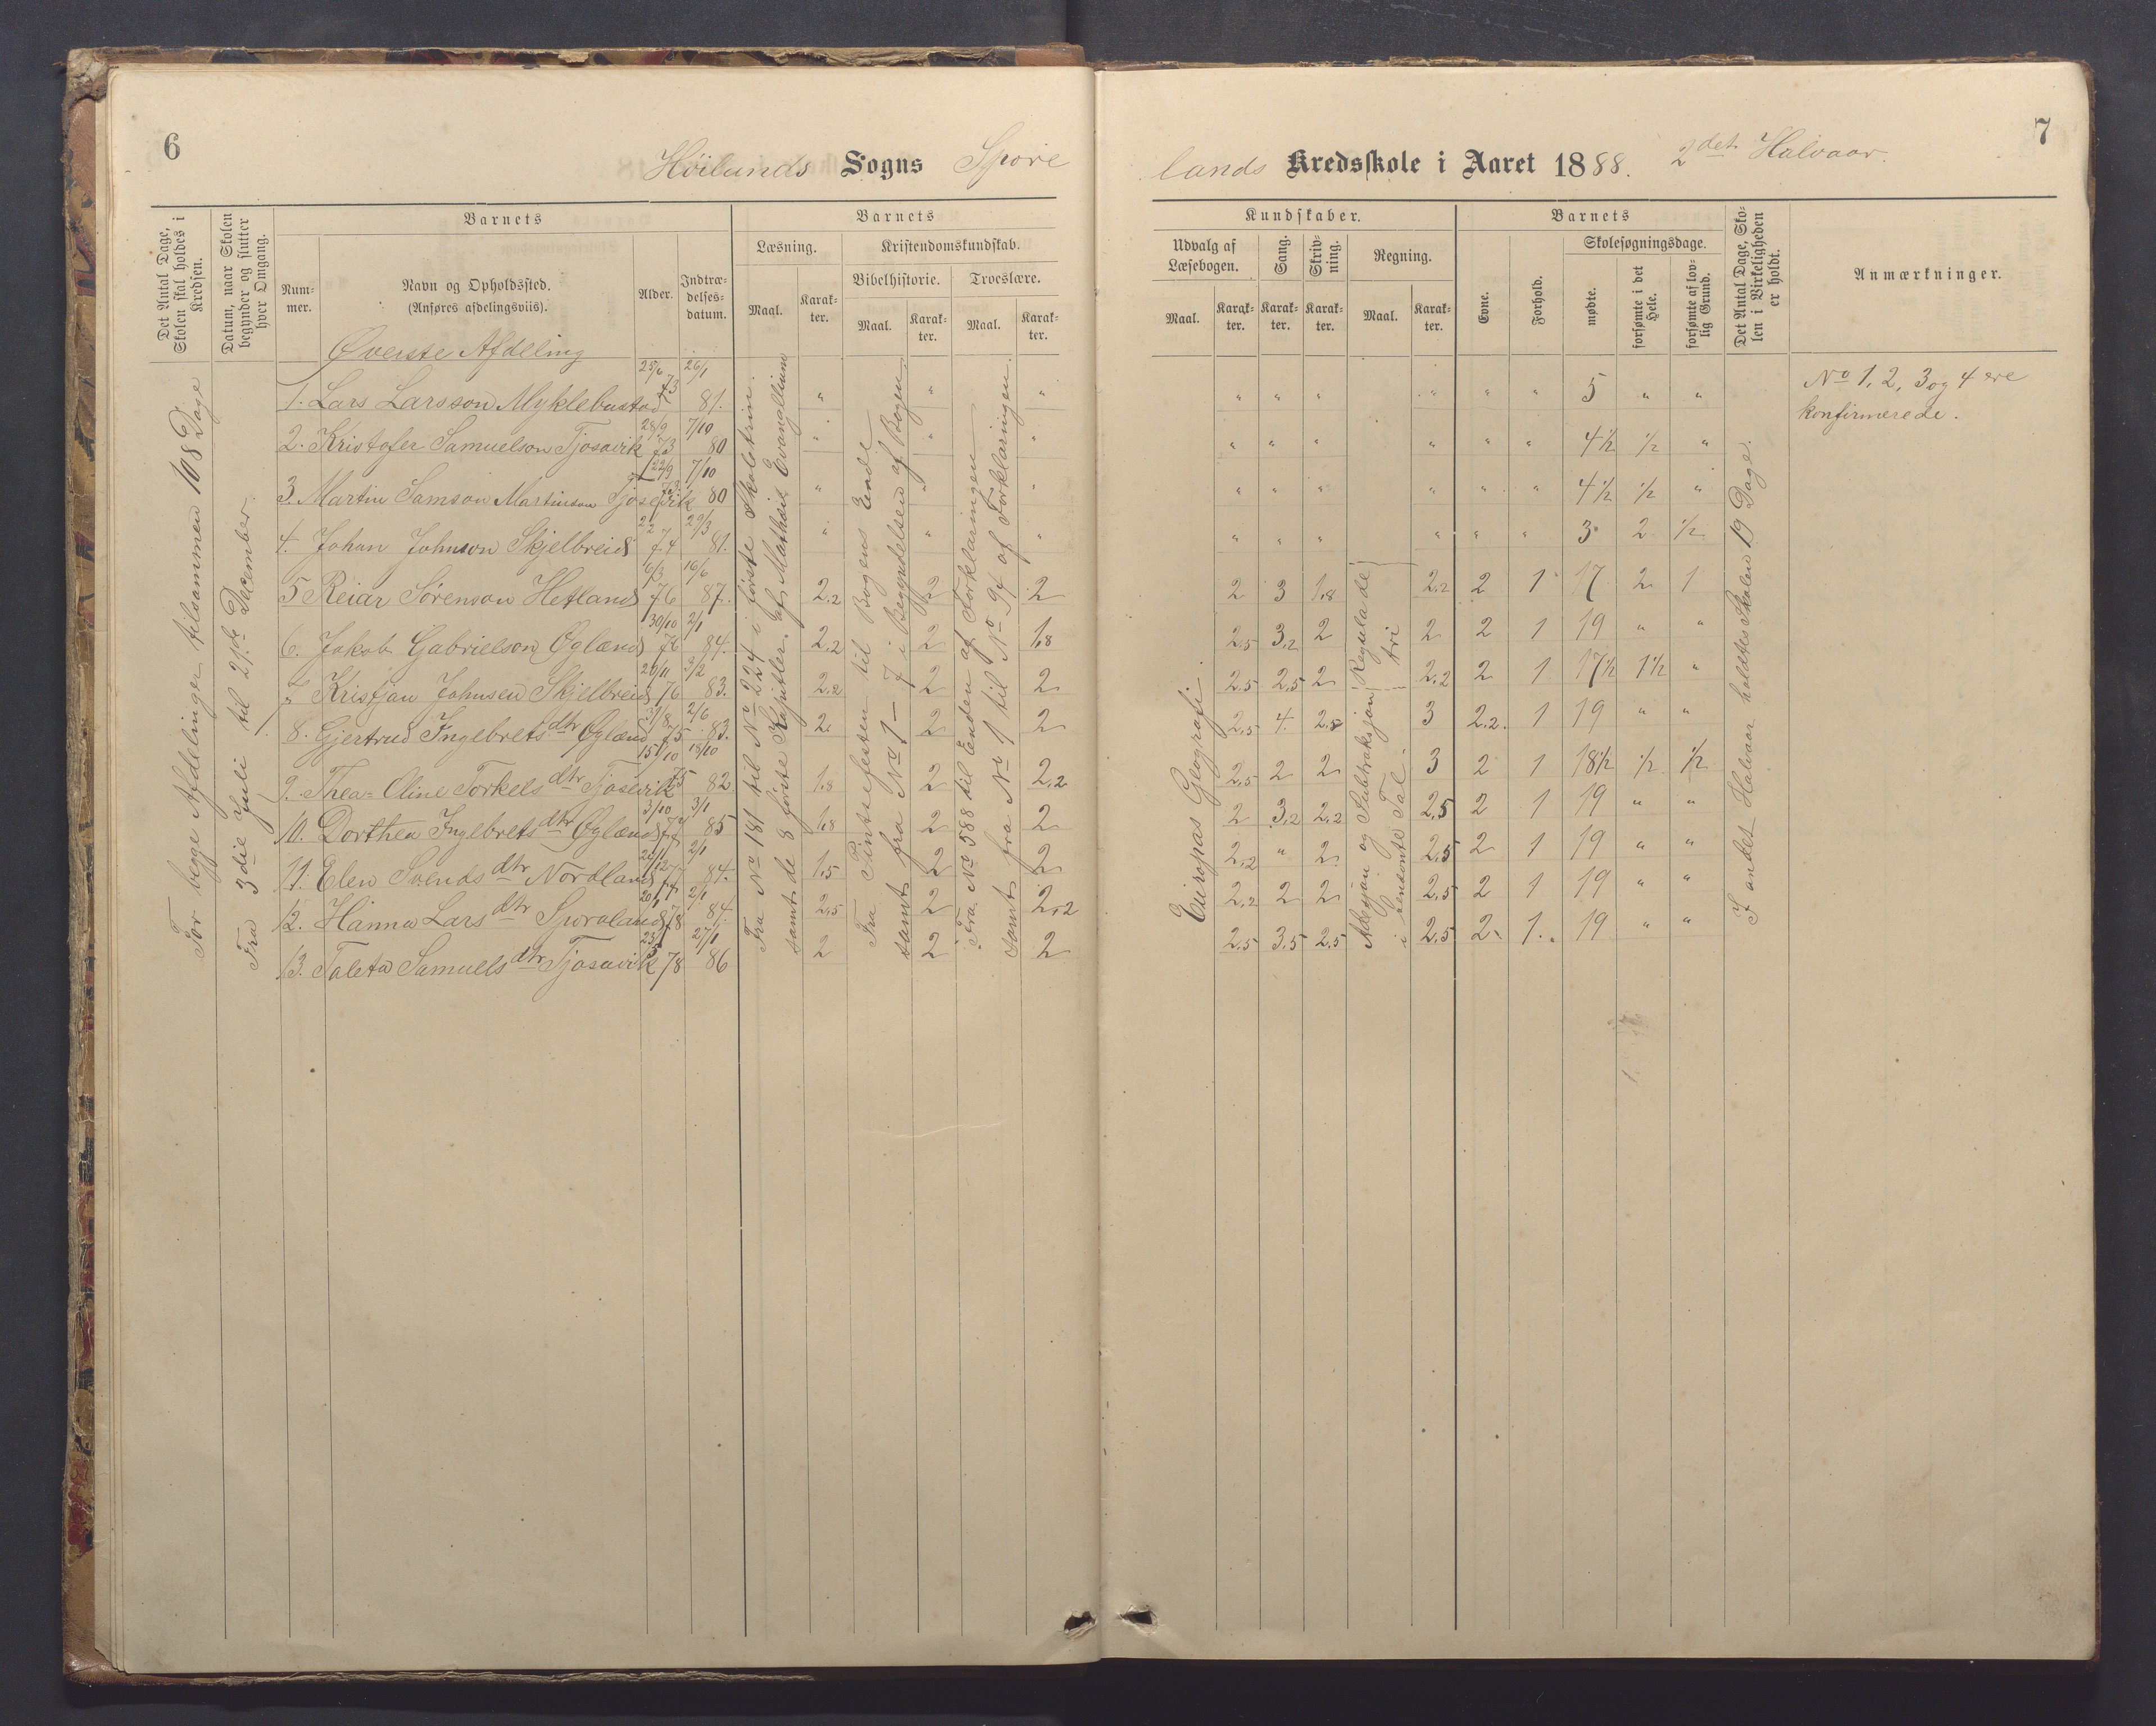 6
Höilands Sogns Spore
Det Antal Dage, Skolen skal holdes i Kredsen.
Datum, naar Skolen begynder og slutter hver Omgang.
Barnets
Nummer.
Navn og Opholdssted.
(Anføres afdelingsviis).
Alder.
Indtrædelsesdatum.
Barnets
Læsning.
Kristendomskundskab.
Bibelhistorie.
Troeslære.
Maal. Karakter. Maal. Karakter. Maal. Karakter.
Øverste Afdeling
For begge Afdelinger tilsammen 108 Dage
Fra 3die Juli til 21de December.
1. Lars Larsson Myklebustad 25/6 73 26/1 81. " " "
2. Kristofer Samuelson Tjosavik 28/9 73 7/10 80 " " "
3. Martin Samson Martinson Tjosevik 22/9 73 7/10 80 " " "
4. Johan Johnson Skjelbreid 74 29/3 81. " " "
5 Reiar Sörenson Hetland 6/3 76 16/6 87. 2,2 2 2
6. Jakob Gabrielson Øglænd 30/10 76 2/1 84. 2,2 2 1,8
7 Kristjan Johnsen Skjelbreid 20/11 76 5/2 83. 2,2 2 2
8. Gjertrud Ingebrets dtr Øglænd 31/8 75 2/6 83. 2 2 2
9. Thea-Oline Torkels dtr Tjosevik 15/10 75 18/10 82 1,8 2 2,2
10. Dorthea Ingebrets dtr Øglænd 3/10 77 3/1 85 1,8 2 2
11. Elen Svends dtr Nordland 77 2/1 84. 1,5 2 2
12. Hanna Lars dtr Sporaland 20/1 78 2/1 84. 2,5 2 2,2
13. Taleta Samuels dtr Tjosavik 23/5 78 27/1 86 2 2 2
Fra No 181 til No 224 i første Skoletrin.
samt de 8 første Kapitler af Mathæi Evangelium
Fra Pintsefesten til Bogens Ende
samt fra No 1 - 7 i Begyndelsen af Bogen
Fra No 588 til Enden af Forklaringen
samt fra No 1 til No 94 af Forklaringen
7
lands Kredsskole i Aaret 1888. 2det Halvaar.
Kundskaber.
Udvalg af Læsebogen.
Sang.
Skrivning.
Regning.
Maal. Karakter. Karakter. Karakter. Maal. Karakter.
Barnets
Evne.
Forhold.
Skolesøgningsdage.
mødte.
forsømte i det Hele.
forsømte af lovlig Grund.
Det Antal Dage, Skolen i Virkeligheden er holdt.
Anmærkninger.
" " " " " " 5 " "
" " " " " " 4 1/2 1/2 "
" " " " " " 4 1/2 1/2 "
" " " " " " 3 2 1/2
2 3 1,8 2,2 2 1 17 2 1
2,5 3,2 2 2 2 1 19 " "
2,5 2,5 2 2,2 2 1 17 1/2 1 1/2 "
2,5 4. 2,8 3 2,2. 1 19 " "
2,5 2 2 3 2 1 18 1/2 1/2 1/2
2 3,2 2,2 2,5 2 1 19 " "
2,2 " 2 2,5 2 1 19 " "
2,2 2 2 2,5 2 1 19 " "
2,5 3,5 2,5 2,5 2 1. 19 " "
Europas Geografi.
Regula de
tri
Adisjon og Subtraksjon
i benævnte Tal
I andet Halvaar holdtes Skolen 19 Dage.
No 1, 2, 3 og 4 ere
konfirmerede.